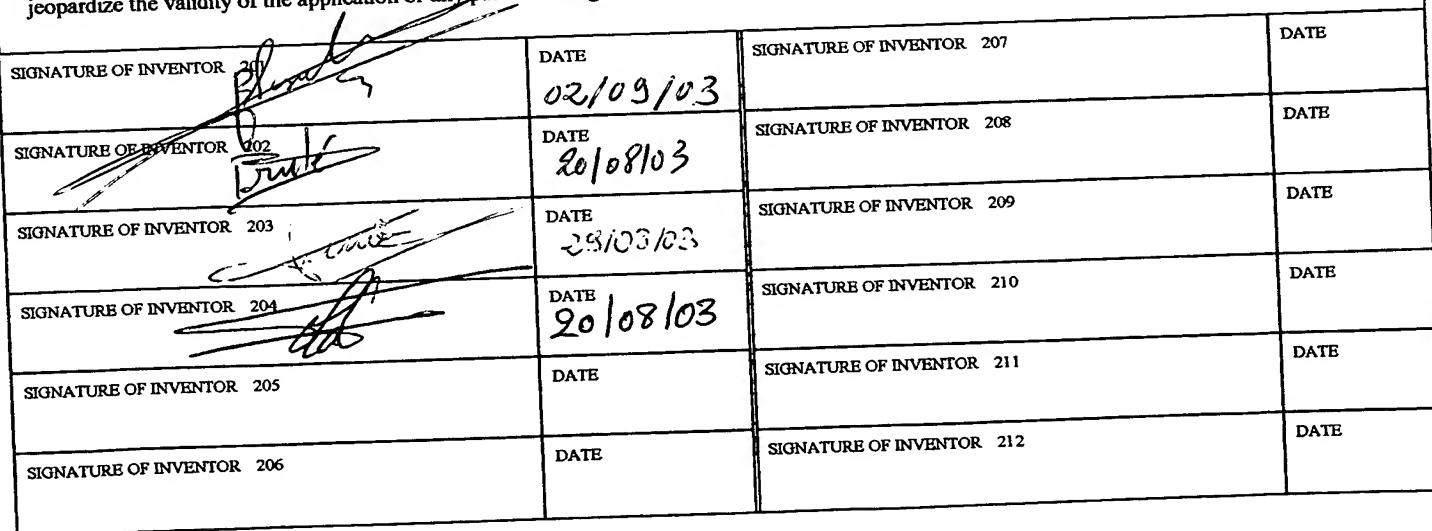 jeopardize the validity of the application or any
SIGNATURE OF INVENTOR 201
DATE
02/09/03
SIGNATURE OF INVENTOR 207
DATE
SIGNATURE OF INVENTOR 202
DATE
20/08/03
SIGNATURE OF INVENTOR 208
DATE
SIGNATURE OF INVENTOR 203
DATE
SIGNATURE OF INVENTOR 209
DATE
SIGNATURE OF INVENTOR 204
DATE
20/08/03
SIGNATURE OF INVENTOR 210
DATE
SIGNATURE OF INVENTOR 205
DATE
SIGNATURE OF INVENTOR 211
DATE
SIGNATURE OF INVENTOR 206
DATE
SIGNATURE OF INVENTOR 212
DATE